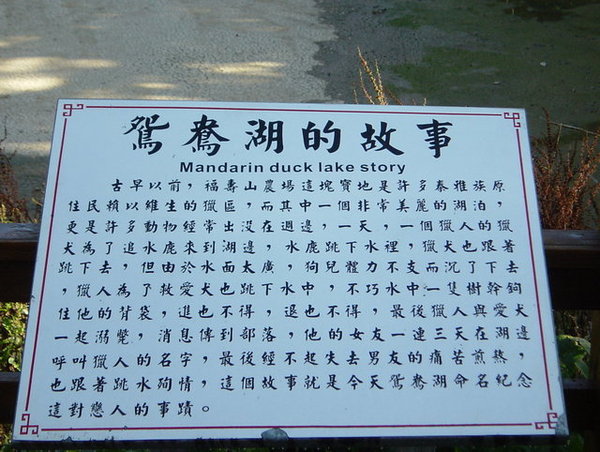 鴛鴦湖的故事
Mandarin duck lake story
古早以前，福壽山農場這塊寶地是許多泰雅族原
住民賴以維生的獵區，而其中一個非常美麗的湖泊，
更是許多動物經常出沒在週邊，一天，一個獵人的獵
犬為了追水鹿來到湖邊，水鹿跳下水裡，獵犬也跟著
跳下去，但由於水面太廣，狗兒體力不支而沉了下去
，獵人為了救愛犬也跳下水中，不巧水中一隻樹幹鉤
住他的背袋，進也不得，退也不得，最後獵人與愛犬
一起溺斃，消息傳到部落，他的女友一連三天在湖邊
呼叫獵人的名字，最後經不起失去男友的痛苦煎熬，
也跟著跳水殉情，這個故事就是今天鴛鴦湖命名紀念
這對戀人的事蹟。